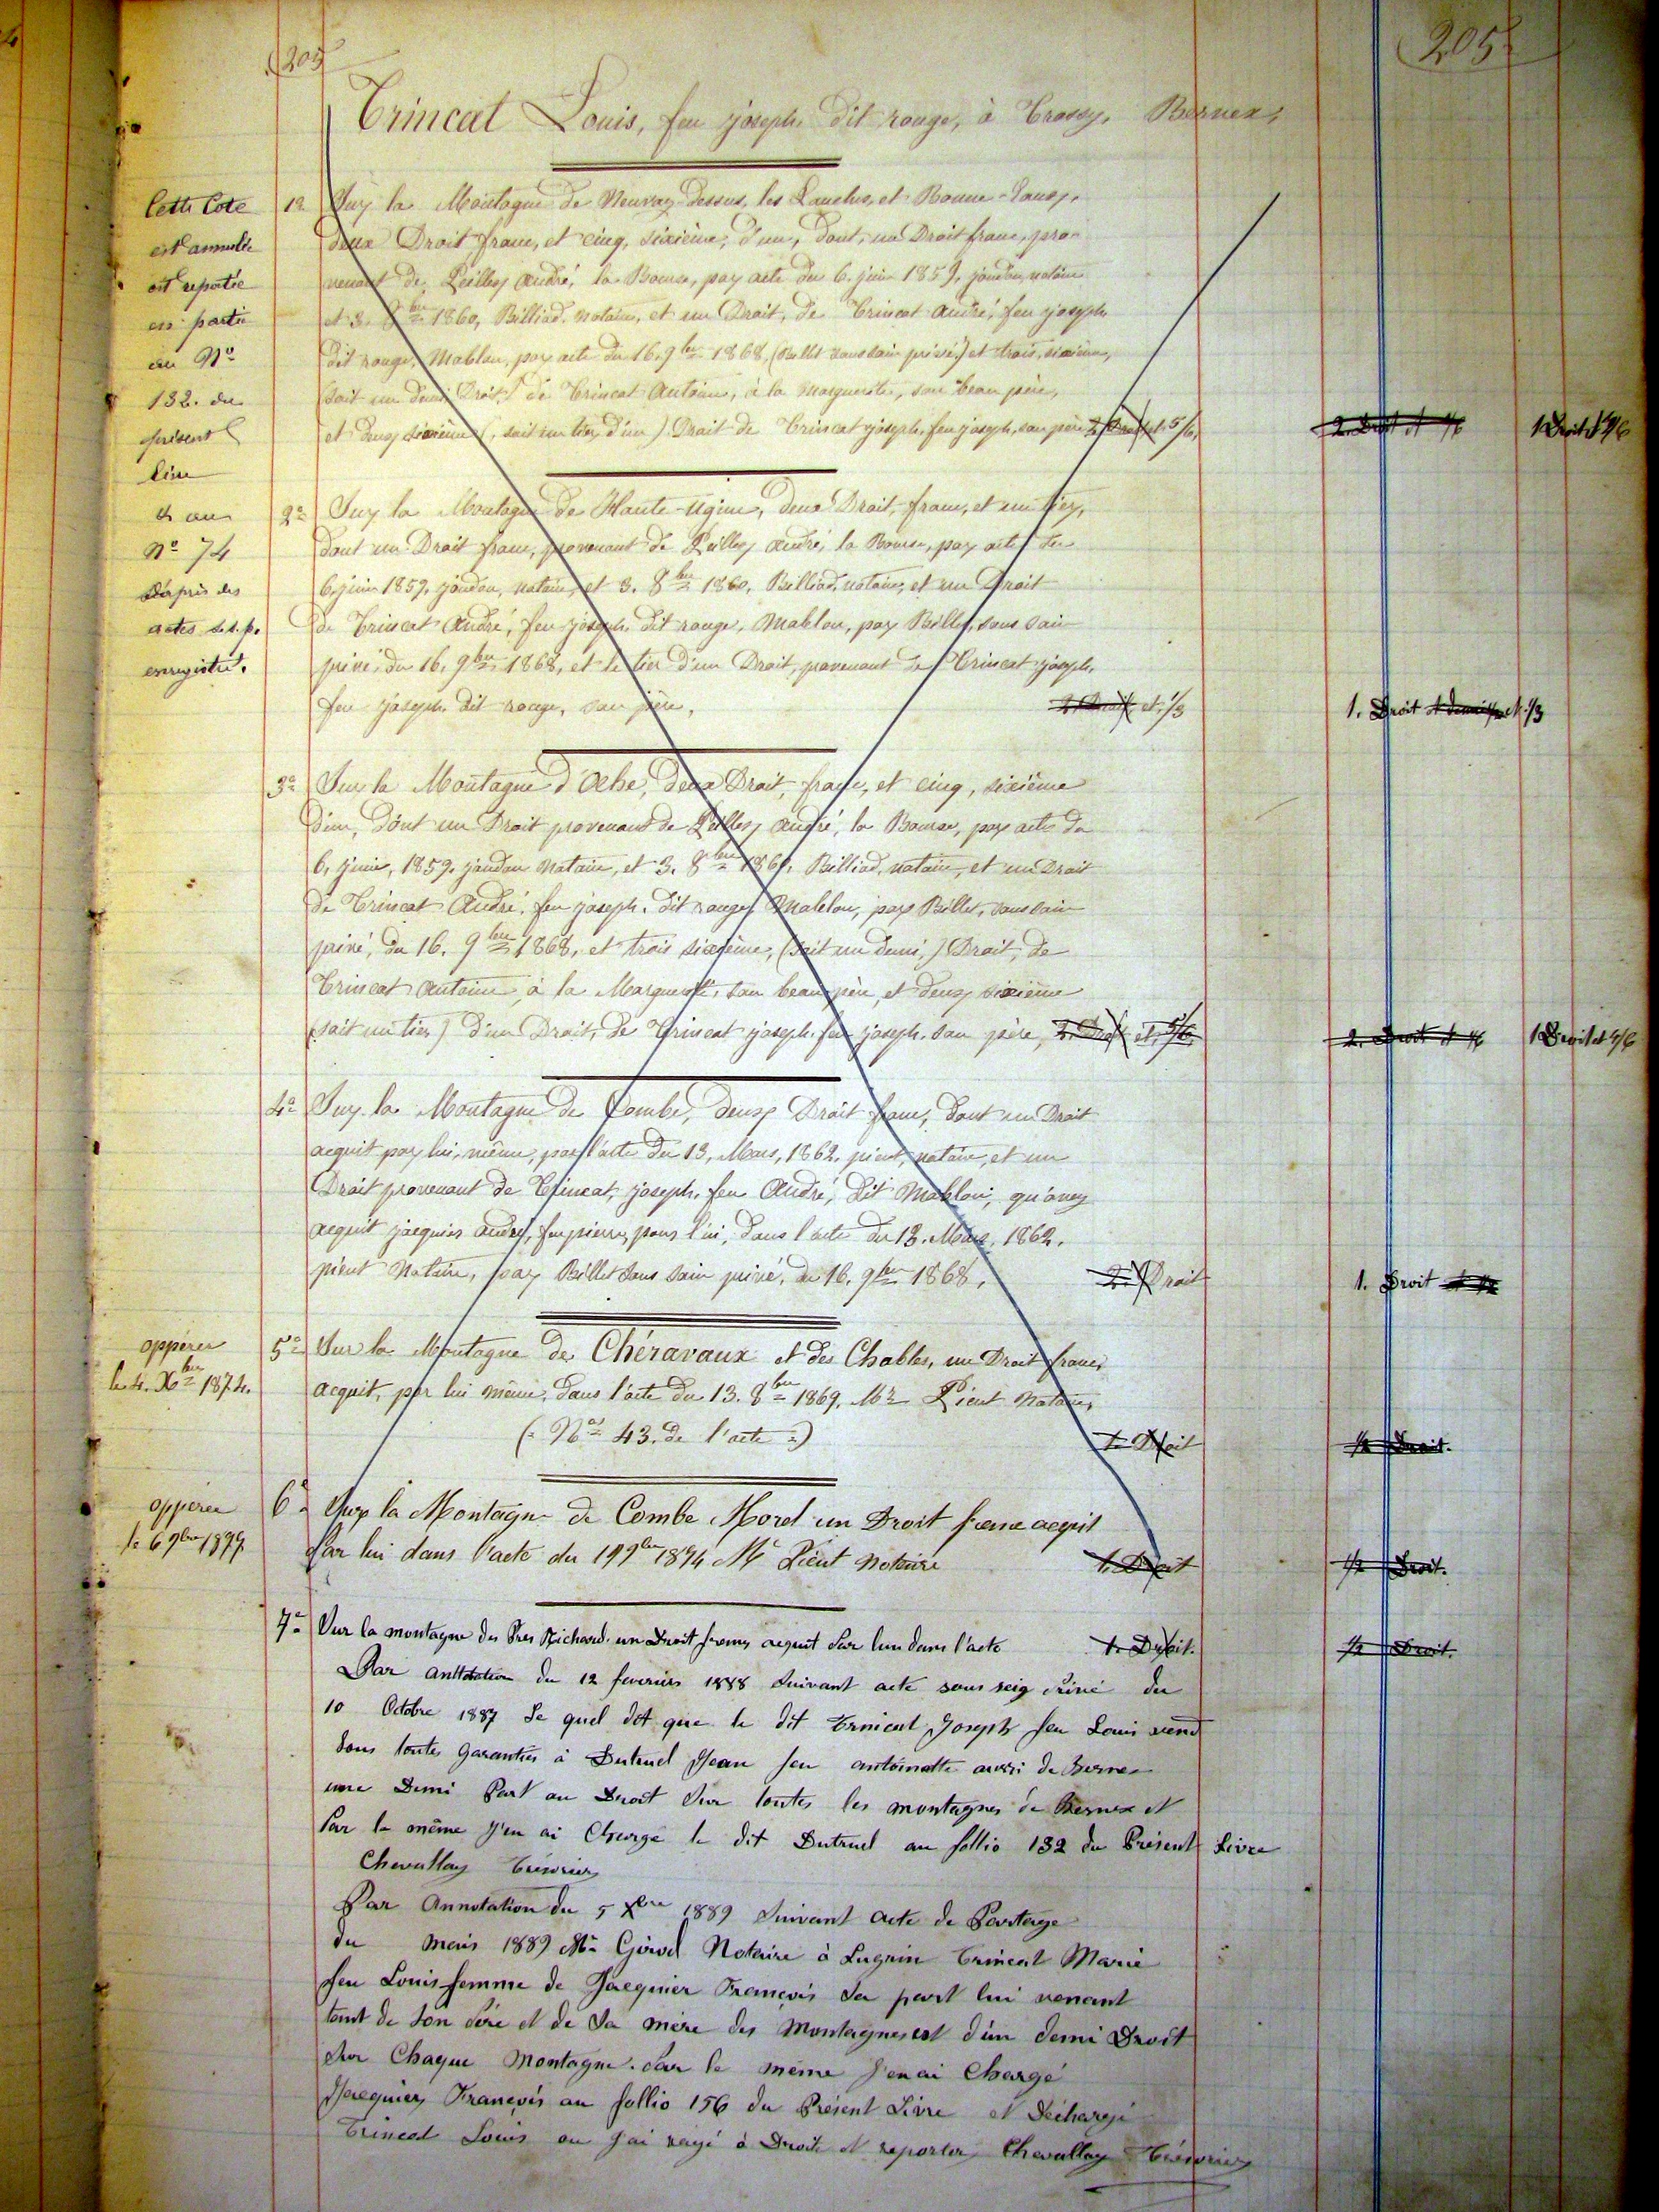 205
205
Trincat Louis, feu joseph dit rouge, à Trossy, Bernex,
Cette Cote
est annulée
est reportée
en partie
au Nº
132. du
présent
livre
et au
Nº 74
d'après des
actes s.s.p.
enregistré.
1º Sur la Montagne de Neuvaz-Dessus, les et Bonne-
deux Droit franc, et cinq, sixième, d'un, dont, un Droit franc, pro-
venant de, Peilley André, la Bourse, par acte du 6. juin 1859, jaudon, notaire
et 3. 8bre 1860, Billiad, notaire, et un Droit, de Trincat André, feu joseph
dit rouge, Mablou, par acte du 16. 9bre 1868, (Billet sous sain privé,) et trois, sixième,
soit un demi, Droit, de Trincat Antoine, à la Marguerite, son beau père,
et deux sixième (, soit un tier, d'un ) Droit de Trincat joseph, feu joseph, son père, 2. Droit et. 5/6,
2. Droit et 4/6
1 Droit et 4/6
2º Sur la Montagne de Haute-Ugine, deux Droit, franc, et un tier,
dont un Droit franc, provenant de Peilley André, la Bourse, par acte du
6. juin 1859. jaudon, notaire, et 3. 8bre 1860, Billiad, notaire, et un Droit
de Trincat André, feu joseph, dit rouge, Mablou, par Billet, sous sain
privé, du 16. 9bre 1868, et le tier d'un Droit, provenant de Trincat joseph,
feu joseph dit rouge, son père, 2. Droit et. 1/3
1. Droit et demi et. 1/3
3º Sur la Montagne d'Oche, deux Droit, franc, et cinq, sixième
d'un, dont un Droit provenant de Peilley André, la Bourse, par acte du
6, juin, 1859. jaudon notaire, et 3. 8bre 1860, Billiad, notaire, et un Droit
de Trincat André, feu joseph. dit rouge, Mablou, par Billet, sous sain
privé, du 16. 9bre 1868, et trois sixième, (soit un demi,) Droit, de
Trincat Antoine, à la Marguerite, son beau père, et deux sixième
(soit un tier,) d'un Droit, de Trincat joseph, feu joseph. son père, 2. Droit et. 5/6.
2. Droit et 4/6
1 Droit et 4/6
4º Sur la Montagne de Combe, deux Droit franc, dont un Droit
acquit par lui, même, par l'acte du 13, Mars, 1862. pieut, notaire, et un
Droit provenant de Trincat, joseph, feu André, dit Mablou, qu'avez
acquit jacquier André, feu pierre, pour l'ui, dans l'acte du 13. Mars, 1862.
pieut Notaire, par Billet sous sain privé, du 16. 9bre 1868, 2. Droit
1. Droit et 1/2
opperer
le 4. Xbre 1874.
5º Sur la Montagne de Chéravaux et des Chables, un Droit franc,
acquit, par lui même, dans l'acte du 13. 8bre 1869. Mre Pieut Notaire,
(: Nº 43. de l'acte :) 1. Droit
1/2 Droit.
opperer
le 6 9bre 1877
6º Sur la Montagne de Combe Morel un Droit franc acquit
Par lui dans l'acte du 19 9bre 1874 Me Pieut Notaire 1. Droit
1/2 Droit.
7º Sur la montagne des Pres Richard, un Droit franc acquit Par lui dans l'acte 1. Droit.
1/2 Droit.
Par anttotation du 12 fevrier 1888 Suivant acte sous seig Privé du
10 Octobre 1887 Le quel dit que le dit Trincat Joseph feu Louis vend
Sous toutes Garanties à Dutruel Jean feu antoinette aussi de Bernex
une Demi Part au Droit Sur toutes les montagnes de Bernex et
Par le même J'en ai Chargé le dit Dutruel au follio 132 du Présent Livre
Chevallay Trésorier
Par Annotation du 5 Xbre 1889 Suivant acte de Partage
du mars 1889 Me Girod Notaire à Lugrin Trincat Marie
feu Louis femme de Jacquier François Sa part lui venant
tant de Son Père et de Sa mère des Montagnes est d'un demi Droit
Sur Chaque Montagne. Par le même J'en ai Chargé
Jacquier François au follio 156 du Présent Livre et Déchargé
Trincat Louis ou j'ai rayé à Droite et reporter Chevallay Trésorier